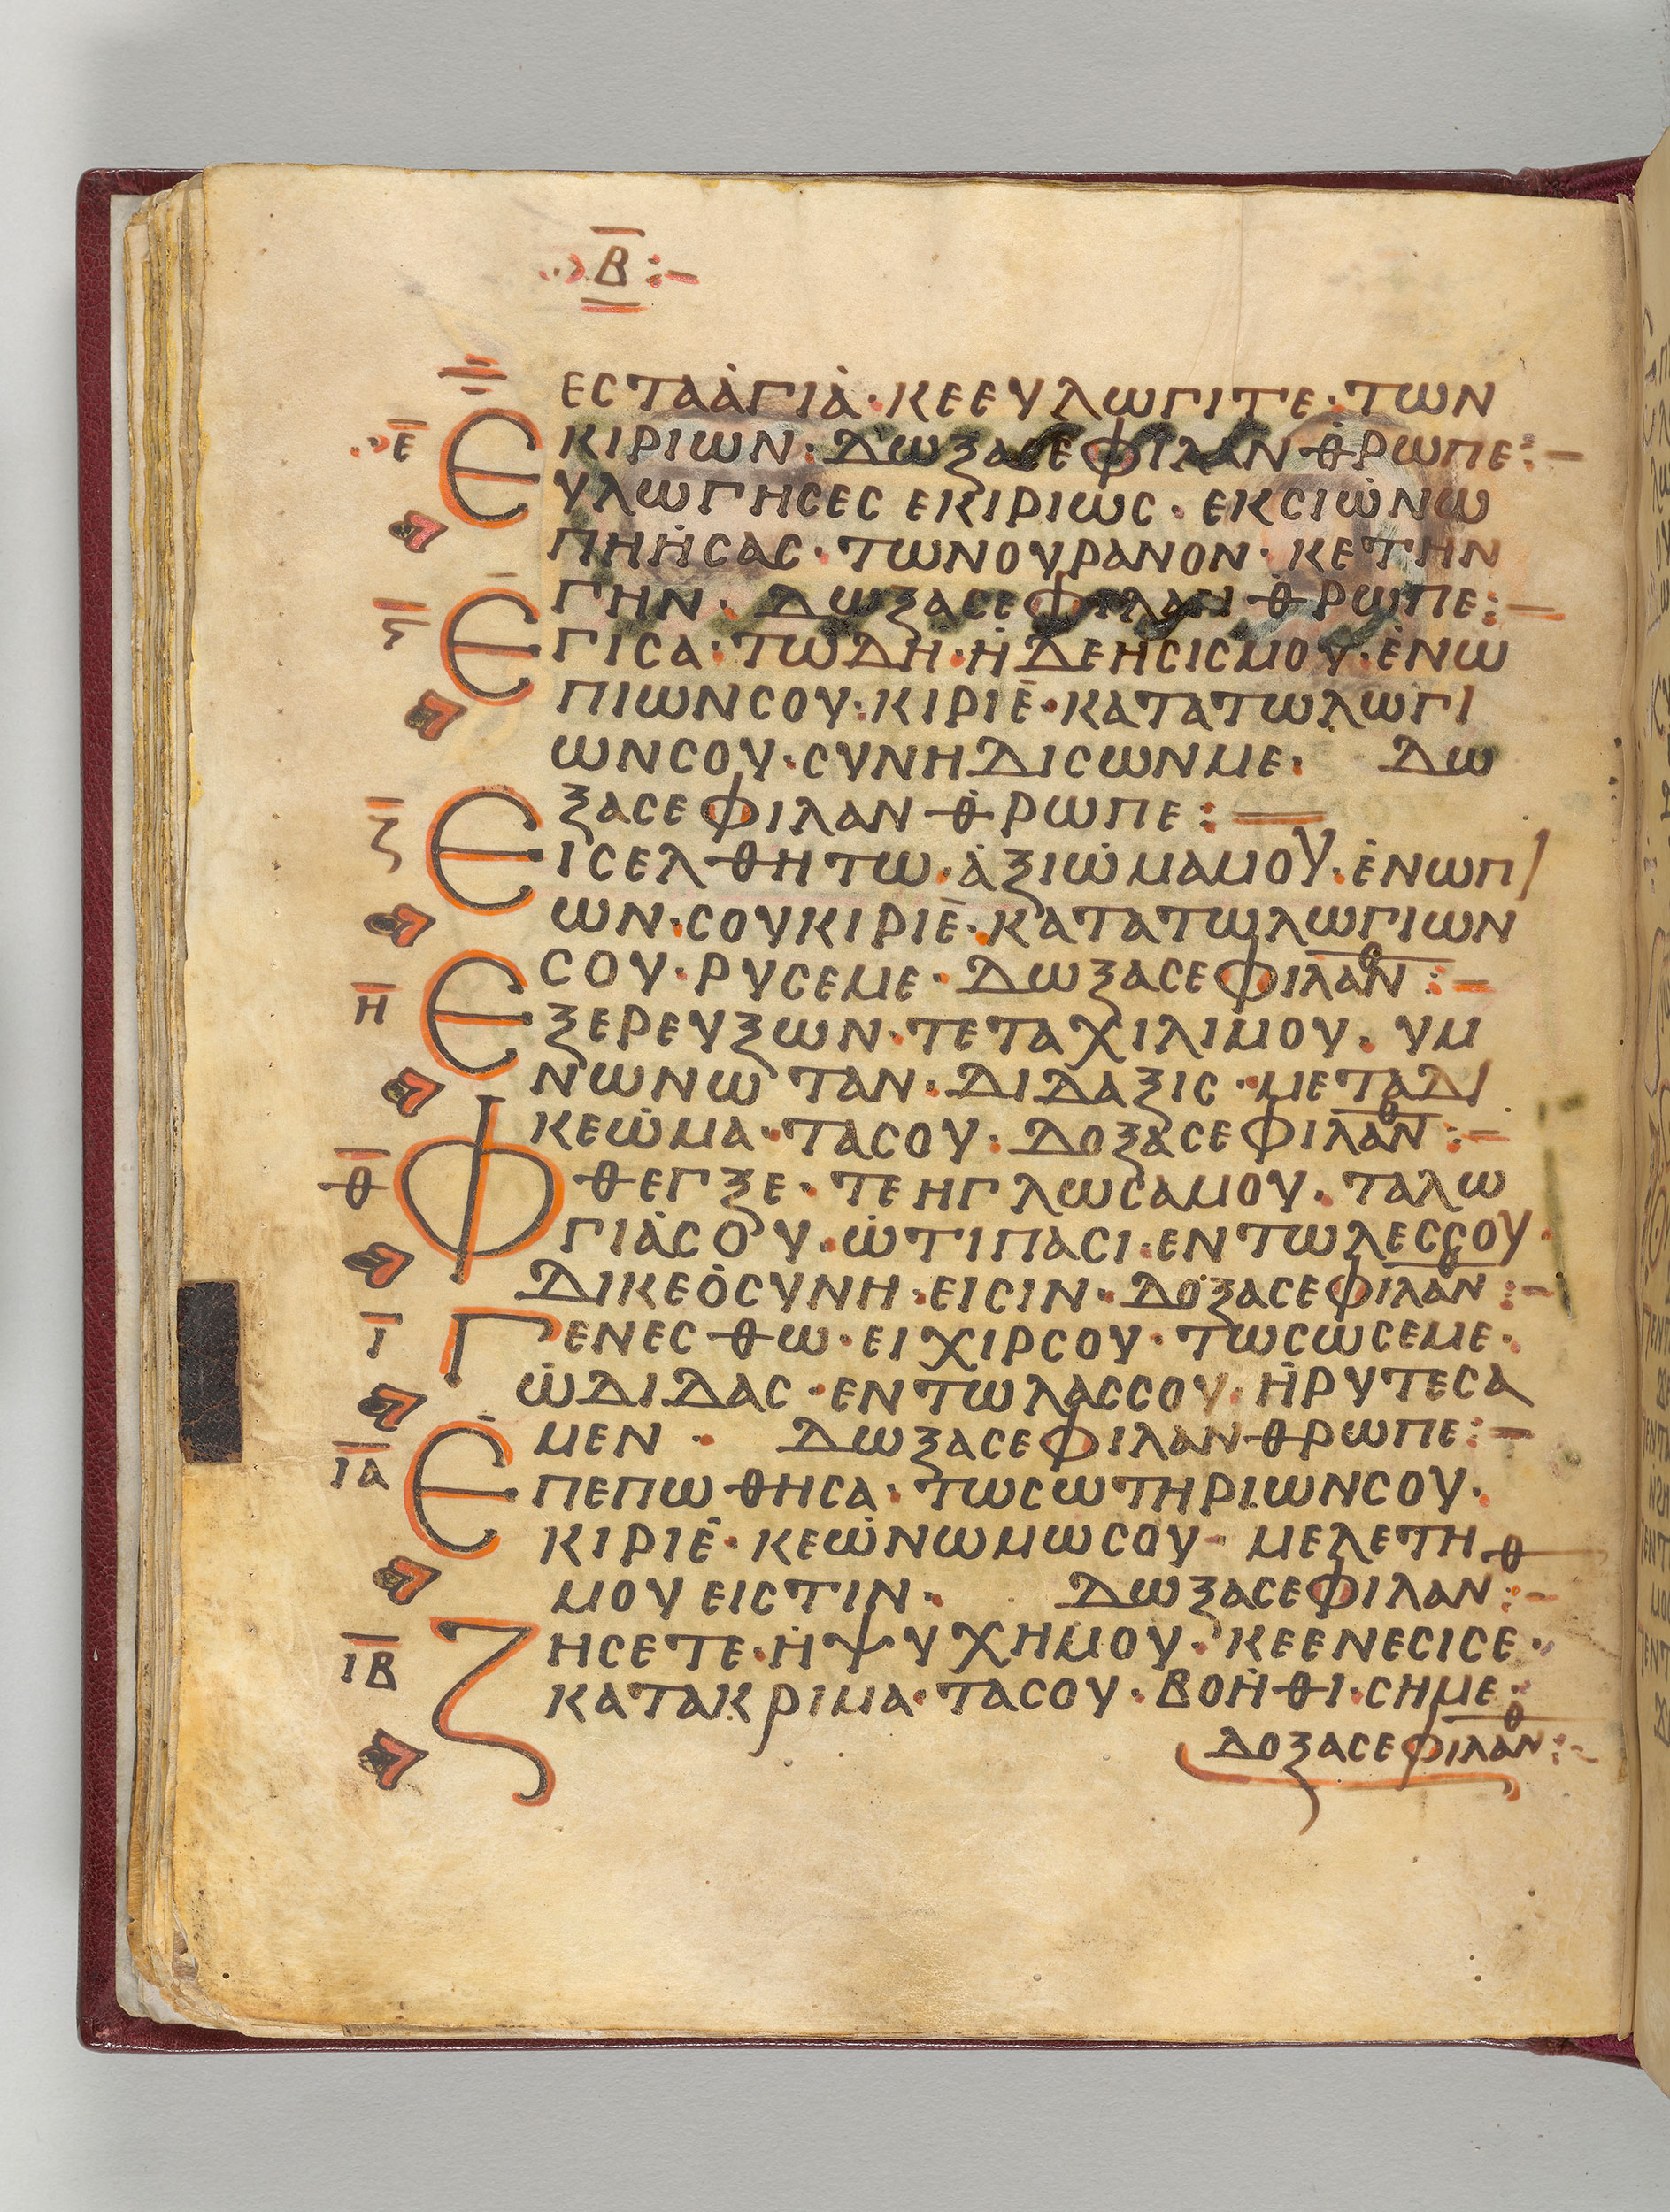 Β
ΕСΤΑἀΓΙἀ·ΚΕΕΥΛωΓΙΤΕ·Των
Ε ΚΙΡΙωΝ·ΔωξαСΕΦΙΛΑΝΘΡωΠΕ:–
ΕΥΛωΓΗСΕС ΕΚΙΡΙωС·ΕΚСΙωΝω
ΠΗΗСΑС·ΤωΝΟΥΡΑΝΟΝ·ΚΕΤΗΝ
ΓΗΝ·ΔωξΑСΕΦΙΛΑΝΘΡωΠΕ:–
Ϛ ΕΓΙСΑ·ΤωΔΗ·ΗΔΕΗСΙСΜΟΥ·ΕΝω
ΠΙωΝСΟΥ·ΚΙΡΙΕ·ΚΑΤΑΤωΛωΓΙ
ωΝСΟΥ·СΥΝΗΔΙСωΝΜΕ· Δω
ξΑСΕΦΙΛΑΝΘΡωΠΕ:–
Ζ ΕΙСΕΛΘΗΤω·ΑξΙωΜΑΜΟΥ·ΕΝωΠΙ
ωΝ·СΟΥΚΙΡΙΕ·ΚΑΤΑΤωΛωΓΙωΝ
СΟΥ·ΡΥСΕΜΕ·ΔωξΑСΕΦΙΛΑΝθ:–
Η ΕξΕΡΕΥξωΝ·ΤΕΤΑΧΙΛΙΜΟΥ·ΥΜ
ΝωΝωΤΑΝ·ΔΙΔΑξΙС·ΜΕΤΑΔΙ
ΚΕωΜΑ·ΤΑСΟΥ·ΔΟξΑСΕΦΙΛΑΝθ:–
Θ ΦΘΕΓξΕ·ΤΕΗΓΛωСΑΜΟΥ·ΤΑΛω
ΓΙΑСΟΥ·ωΤΙΠΑСΙ·ΕΝΤωΛΕССΟΥ·
ΔΙΚΕΟСΥΝΗ·ΕΙСΙΝ·ΔΟξΑСΕΦΙΛΑΝθ:–
Ι ΓΕΝΕСΘω·ΕΙΧΙΡСΟΥ·ΤωСωСΕΜΕ·
ωΔΙΔΑС·ΕΝΤωΛΑССΟΥ·ΗΡΥΤΕСΑ
ΜΕΝ· ΔωξΑСΕΦΙΛΑΝΘΡωΠΕ:–
ΙΑ ΕΠΕΠωΘΗСΑ·ΤωСωΤΗΡΙωΝСΟΥ·
ΚΙΡΙΕ·ΚΕωΝωΜωСΟΥ·ΜΕΛΕΤΗ
ΜΟΥΕΙСΤΙΝ· ΔωξΑСΕΦΙΛΑΝθ:–
ΙΒ ΖΗСΕΤΕ·ΗΨΥΧΗΜΟΥ·ΚΕΕΝΕСΙСΕ·
ΚΑΤΑΚΡΙΜΑ·ΤΑСΟΥ·ΒΟΗΘΙ·СΗΜΕ·
ΔΟξΑСΕΦΙΛΑΝθ:–